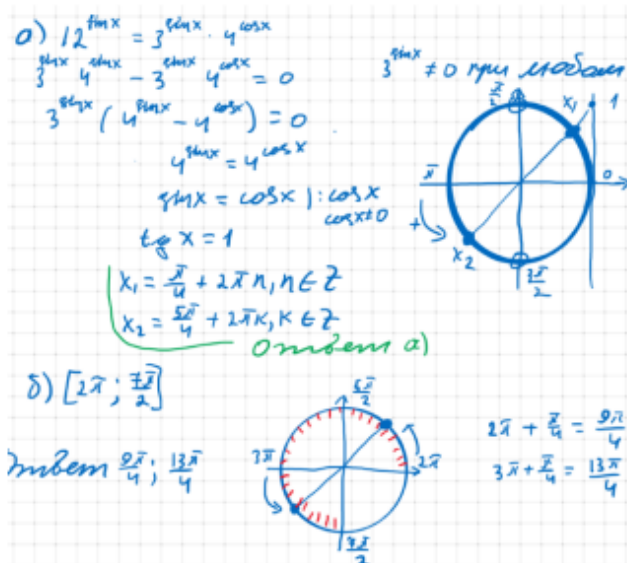 а) 12^sinx = 3^sinx · 4^cosx
3^sinx 4^sinx − 3^sinx 4^cosx = 0
3^sinx (4^sinx − 4^cosx) = 0
3^sinx ≠ 0 при любом
4^sinx = 4^cosx
sinx = cosx |: cosx
cosx≠0
tg x = 1
x₁ = π/4 + 2πn, n ∈ Z
x₂ = 5π/4 + 2πк, к ∈ Z
Ответ а)
π/2
x₁
1
π
0
+
x₂
3π/2
б) [2π; 7π/2]
Ответ 9π/4; 13π/4
5π/2
3π
2π
7π/2
2π + π/4 = 9π/4
3π + π/4 = 13π/4